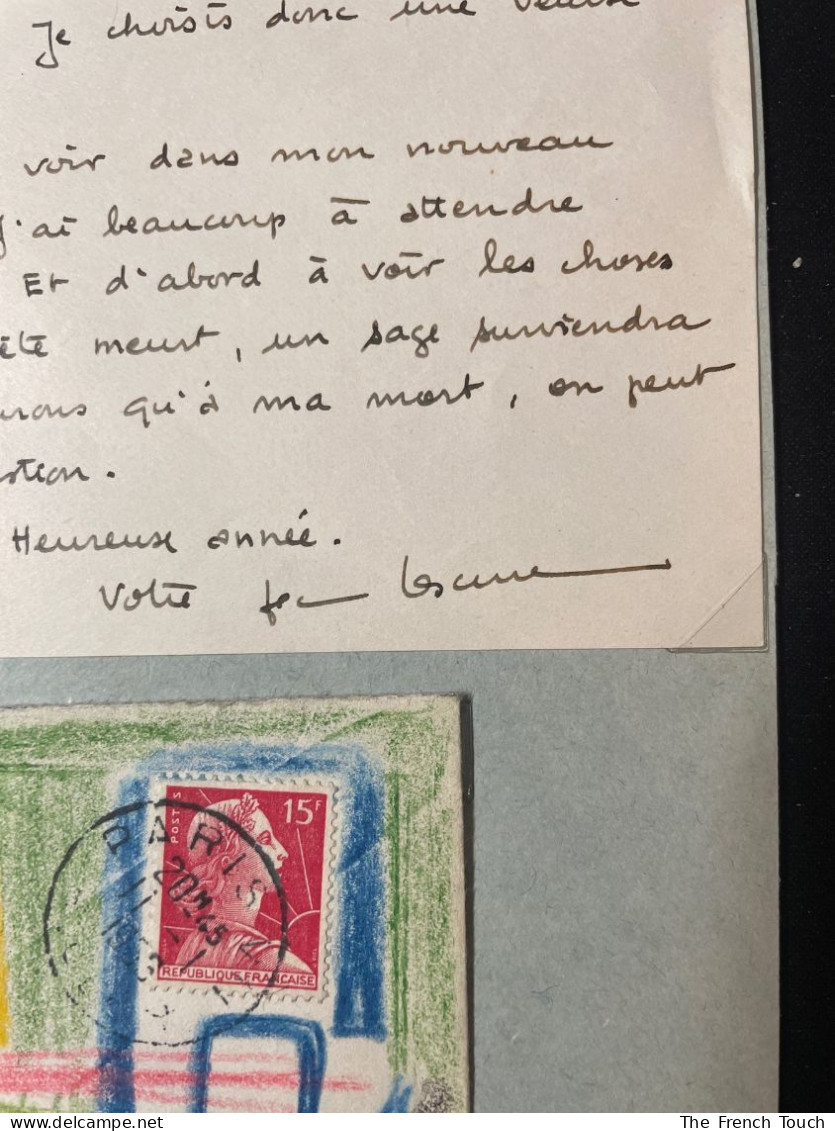 Je choisis donc une
voir dans mon nouveau
J'ai beaucoup à attendre
Et d'abord à voir les choses
été meurt, un sage surviendra
qu'à ma mort, on peut
Heureuse année.
Votre
POSTES
15F
PARIS
REPUBLIQUE FRANÇAISE
The French Touch